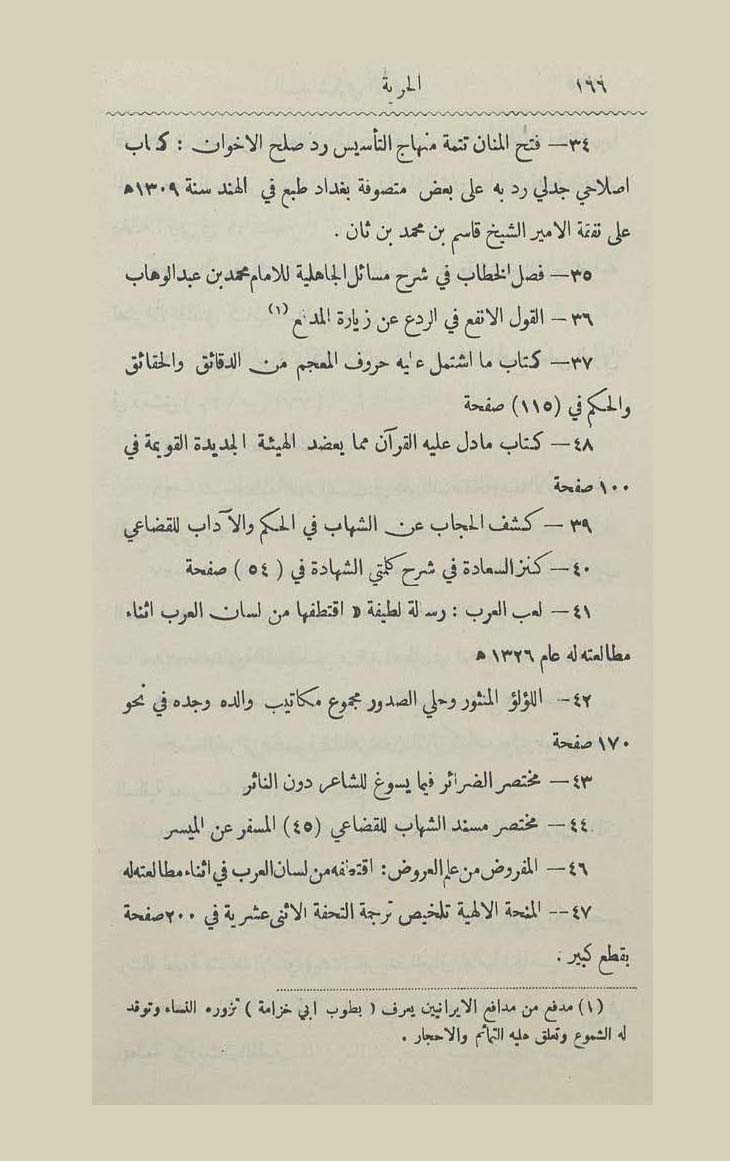 ١٦٦ الحرية
٣٤ — فتح المنان تتمة منهاج التأسيس رد صلح الاخوان : كتاب
اصلاحي جدلي رد به على بعض متصوفة بغداد طبع في الهند سنة ١٣٠٩ ه
على نفقة الامير الشيخ قاسم بن محمد بن ثان .
٣٥ — فصل الخطاب في شرح مسائل الجاهلية للامام محمد بن عبد الوهاب
٣٦ — القول الانفع في الردع عن زيارة المدفع (١)
٣٧ — كتاب ما اشتمل عليه حروف المعجم من الدقائق والحقائق
والحكم في (١١٥) صفحة
٤٨ — كتاب مادل عليه القرآن مما يعضد الهيئة الجديدة القويمة في
١٠٠ صفحة
٣٩ — كشف الحجاب عن الشهاب في الحكم والآداب للقضاعي
٤٠ — كنز السعادة في شرح كلمتي الشهادة في ( ٥٤ ) صفحة
٤١ — لعب العرب : رسالة لطيفة « اقتطفها من لسان العرب اثناء
مطالعته له عام ١٣٢٦ ه
٤٢ — اللؤلؤ المنثور وحلي الصدور مجموع مكاتيب والده وجده في نحو
١٧٠ صفحة
٤٣ — مختصر الضرائر فيما يسوغ للشاعر دون الناثر
٤٤ — مختصر مسند الشهاب للقضاعي (٤٥) المسفر عن الميسر
٤٦ — المفروض من علم العروض : اقتطفه من لسان العرب في اثناء مطالعته له
٤٧ — المنحة الالهية تلخيص ترجمة التحفة الاثنى عشرية في ٢٠٠ صفحة
بقطع كبير :
(١) مدفع من مدافع الايرانيين يعرف ( بطوب ابي خزامة ) تزوره النساء وتوقد
له الشموع وتعلق عليه التمائم والاحجار .